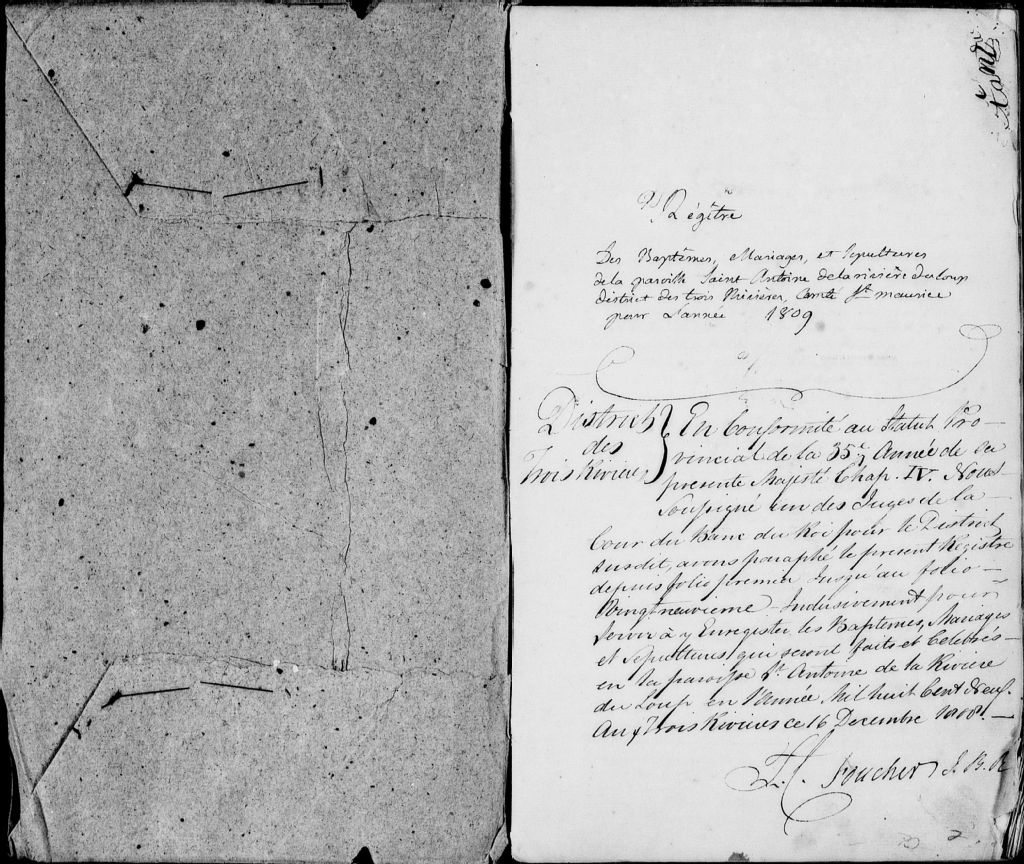 Régître
Des Baptêmes, Mariages, et Sepultures
de la paroisse Saint Antoine de la rivière du Loup
district des trois Rivières, Comté St maurice
pour L'année 1809
District
des
Trois Rivieres
En Conformité au Statut Pro-
vincial de la 35e. Année de Sa
presente Majesté Chap. IV. Nous
Soussigné un des Juges de la
Cour du Banc du Roi pour le District
susdit, avons paraphé le present Registre
depuis folio premier Jusqu'au folio
Vingt neuvieme Inclusivement pour
Servir à y Enregistrer les Baptemes, Mariages
et Sepultures, qui seront faits et Celebrés
en la paroisse St. Antoine de la Riviere
du Loup en l'Année Mil huit Cent Neuf.
Aux Trois Rivieres ce 16 Decembre 1808.
L. C. Foucher J. B. R
2